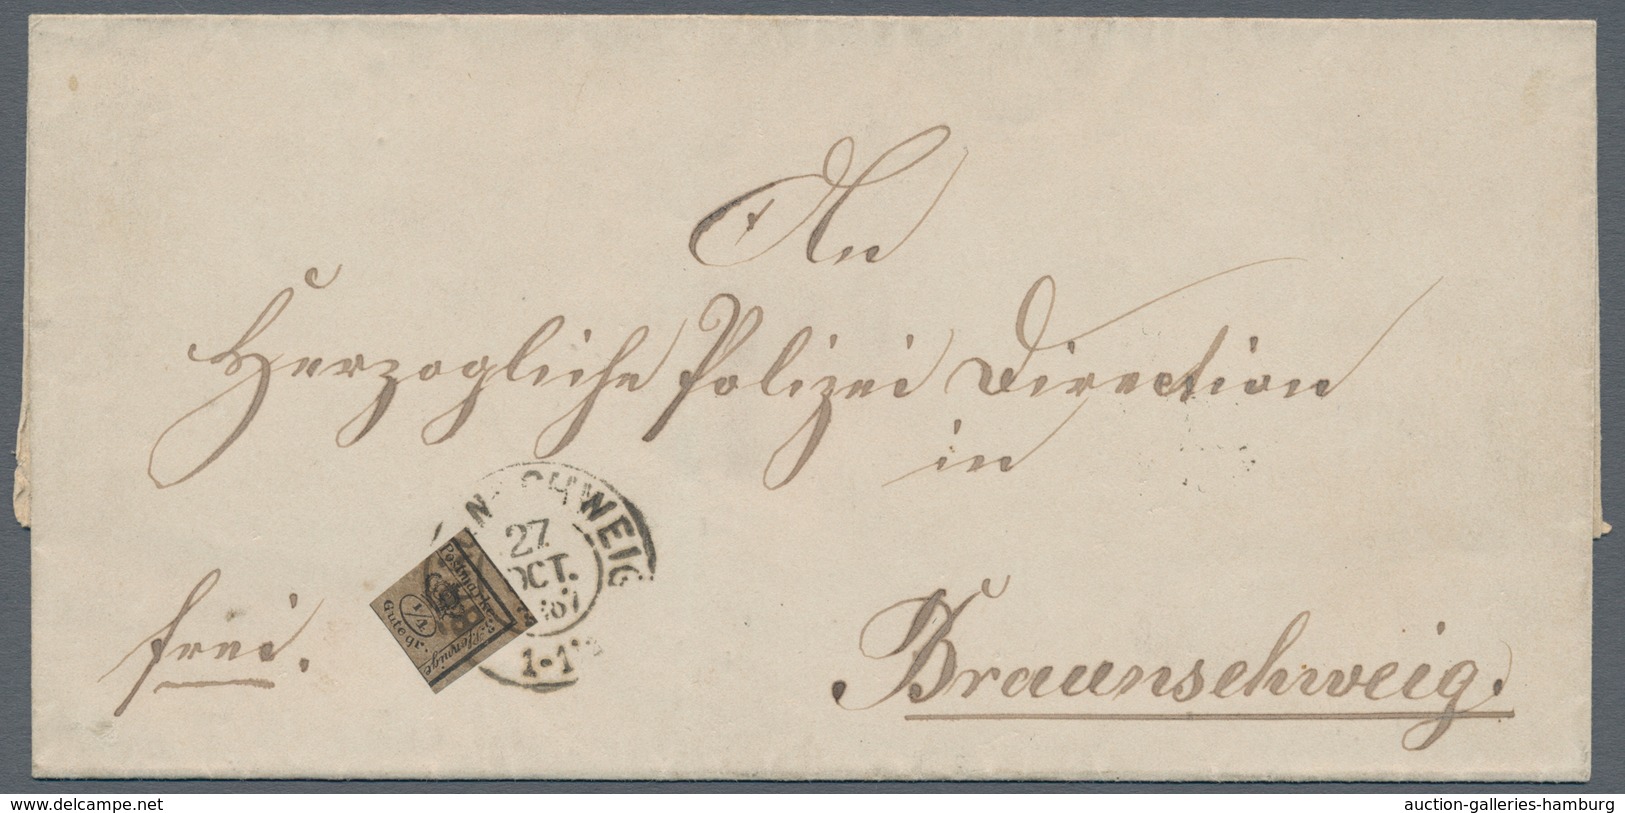 An
Herzogliche Polizei Direction
in
Braunschweig.
frei.
27
OCT.
1-1
Postmarke
1/4
Gutegr.
3 Pfennige
www.delcampe.net
auction-galleries-hamburg